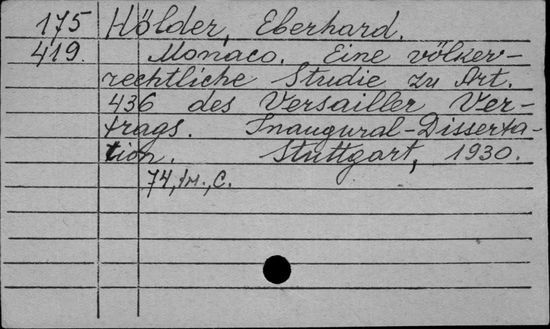 175 Hölder, Eberhard.
419. Monaco. Eine völker-
rechtliche Studie zu Art.
436 des Versailler Ver-
trags. Inaugural-Disserta-
tion. Stuttgart, 1930.
74, C.